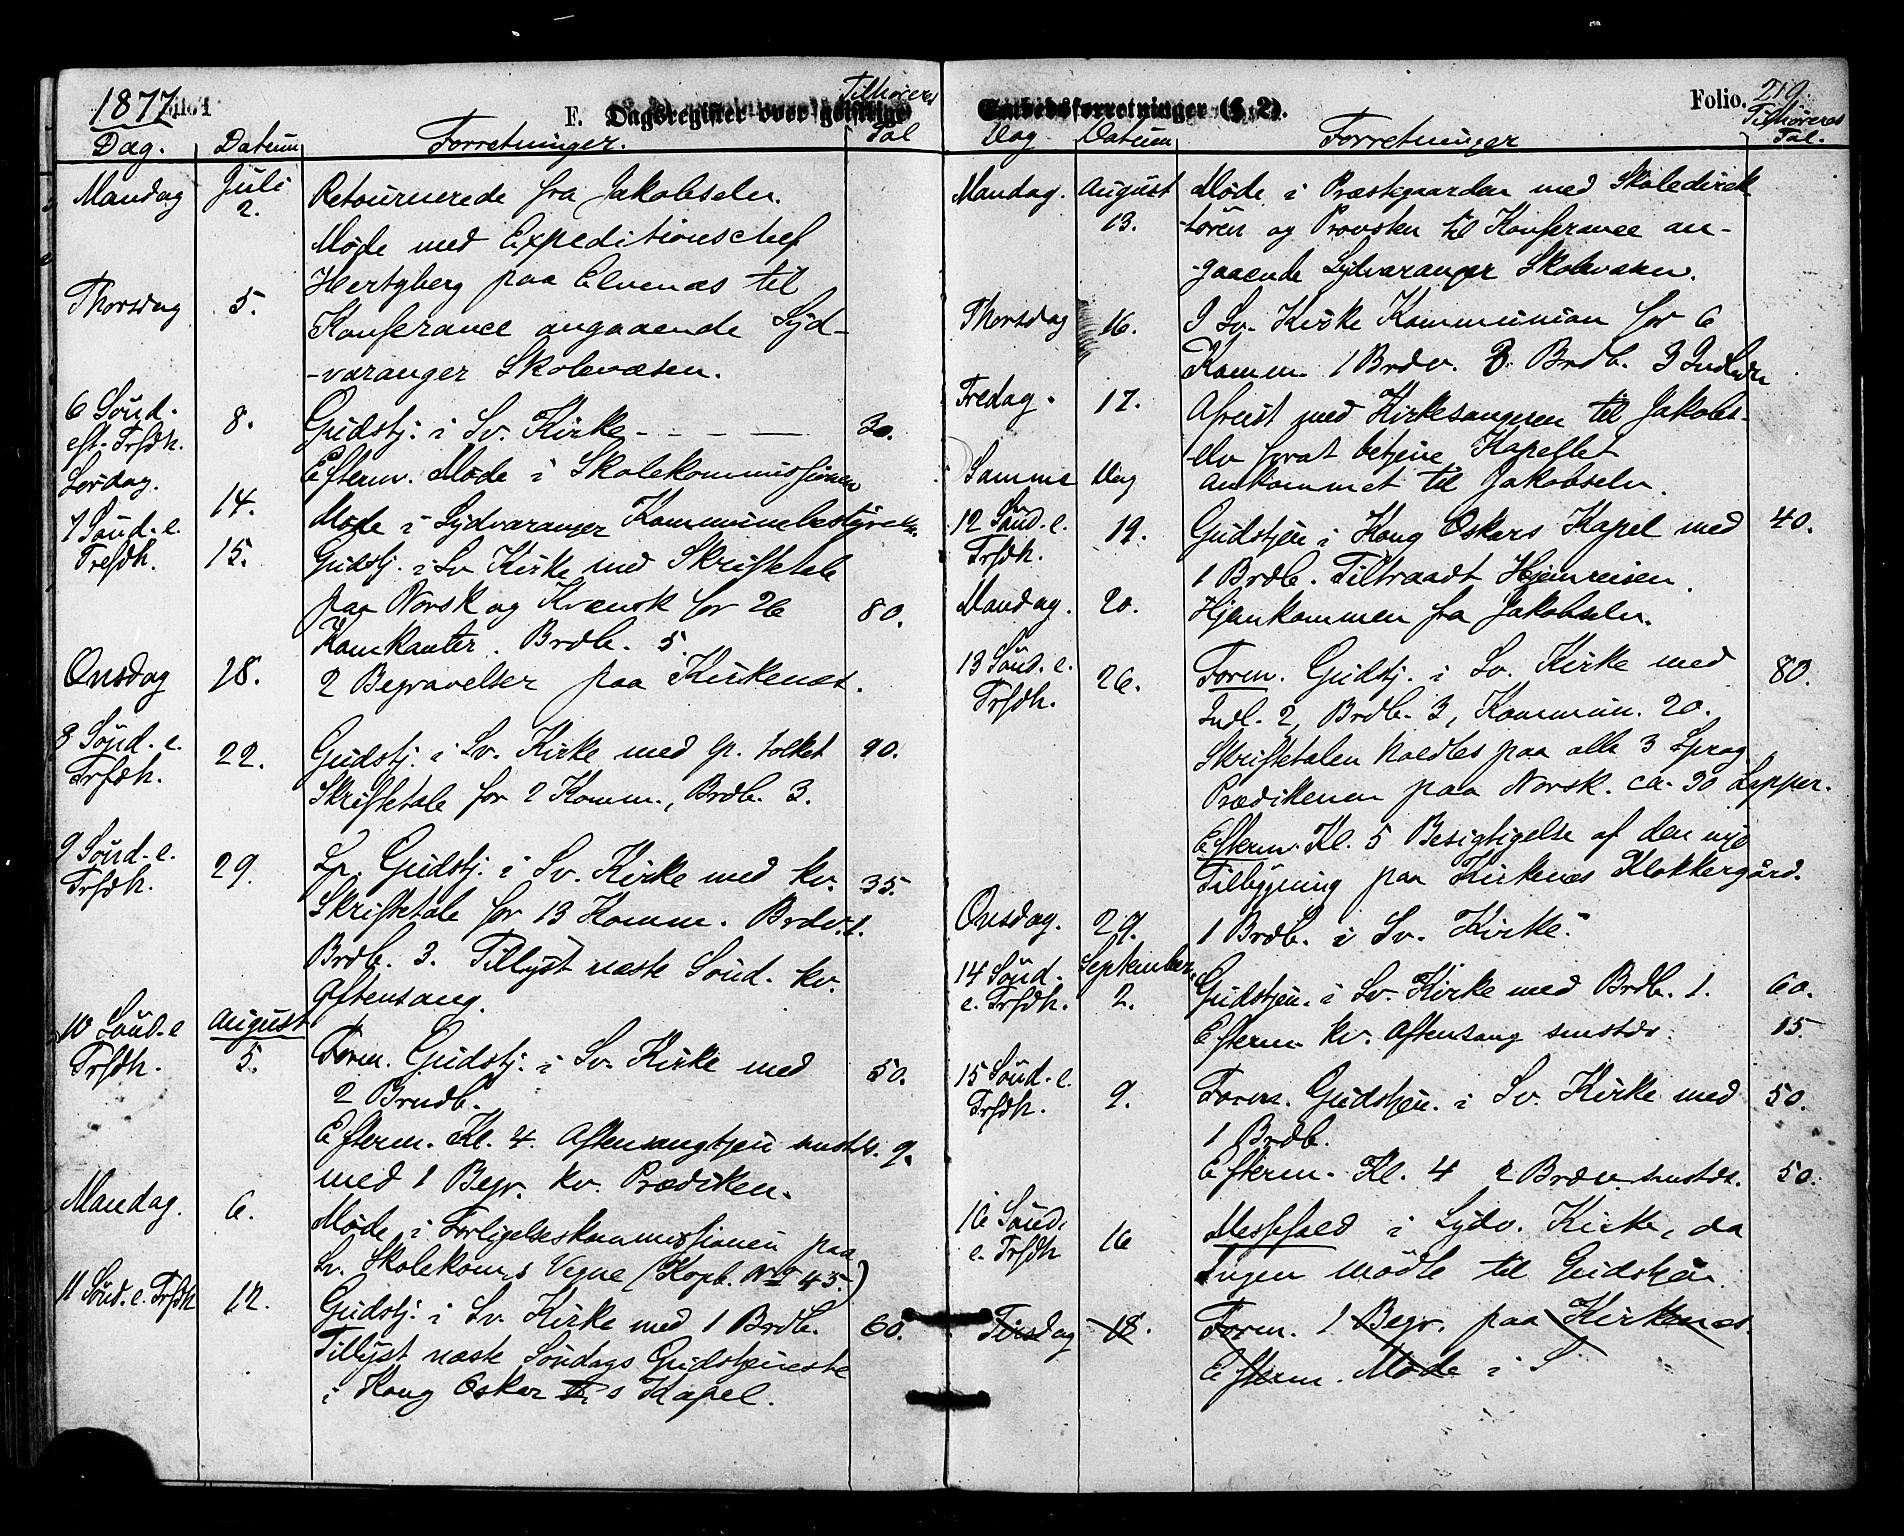 1877
F. Dagsregister over geistlige
Tilhøreres
Tal
Dag. Datum Forretninger.
Mandag Juli 2. Retournerede fra Jakobselv.
Møde med Expeditionschef
Hertzberg paa Elvenæs til
Thorsdag 5. Konferance angaaende Syd-
-varanger Skolevæsen.
6 Sönd. eft. Trfdh. 8. Gudstj. i Sv. Kirke - - - 30.
Efterm. Møde i Skolekommissionen
Lørdag. 14. Møde i Sydvaranger Kommunebestyrelse.
7 Sönd. e. Trefdh. 15. Gudstj. i Sv. Kirke med Skriftetale
paa Norsk og Kvænsk for 26 80.
Komkanter. Brdb. 5.
Onsdag 18. 2 Begravelser paa Kirkenæs.
8 Sönd. e. Trfdh. 22. Gudstj. i Sv. Kirke med lp. tolket 90.
Skriftetale for 2 Komm., Brdb. 3.
9 Sönd. e. Trfdh. 29. Lp. Gudstj. i Sv. Kirke med kv. 35.
Skriftetale for 13 Komm. Brdv. 1.
Brdb. 3. Tillyst næste Sönd. kv.
Aftensang.
10 Sönd. e Trfdh. August 5. Form. Gudstj. i Sv. Kirke med 50.
2 Brndb.
Efterm. Kl. 4. Aftensangtjen smstds. 9.
med 1 Begr. kv. Prædiken.
Mandag. 6. Møde i Forligelseskommissionen paa
Sv. Skolekom.s Vegne (Kopb. No 45.)
11 Sönd. e. Trfdh 12. Gudstj. i Sv. Kirke med 1 Brdb. 60.
Tillyst næste Søndags Gudstjeneste
i Kong Oskar s Kapel.
Embedsforretninger (§ 2). Folio. 219.
Tilhøreres
Tal.
Dag Datum Forretninger
Mandag. August 13. Møde i Præstegaarden med Skoledirek
-tören og Provsten til Konferance an-
-gaaende Sydvaranger Skolevæsen.
Thorsdag 16. I Sv. Kirke Kommunion for 6
Komm. 1 Brdv. 3 Brdb. 3 Indledn
Fredag. 17. Afreist med Kirkesangeren til Jakobs-
elv forat betjene Kapellet
Samme Dag Ankommet til Jakobselv.
12 Sönd. e. Trfdh. 19. Gudstjen i Kong Oskars Kapel med 40.
1 Brdb. Tiltraadt Hjemreisen
Mandag. 20. Hjemkommen fra Jakobselv.
13 Sönd. e. Trfdh. 26. Form. Gudstj. i Sv. Kirke med 80.
Indl. 2, Brdb. 3, Kommun. 20.
Skriftetalen holdtes paa alle 3 Sprog
Prædikenen paa Norsk. ca. 30 Lapper.
Efterm. Kl. 5 Besigtigelse af den nye
Tilbygning paa Kirkenæs Klokkergård.
Onsdag. 29. 1 Brdb. i Sv. Kirke.
14 Sönd. e. Trfdh. September 2. Gudstjen. i Sv. Kirke med Brdb. 1. 60.
Efterm. kv. Aftensang smstds. 15
15 Sönd. e. Trfdh. 9. Form. Gudstjen. i Sv. Kirke med 50.
1 Brdb.
Efterm. Kl. 4 2 Brdv. smstds. 50.
16 Sönd. e. Trfdh 16 Messefald i Sydv. Kirke, da
Ingen mödte til Gudstjen.
Tirsdag 18. Form. 1 Begr. paa Kirkenæs.
Efterm. Møde i S